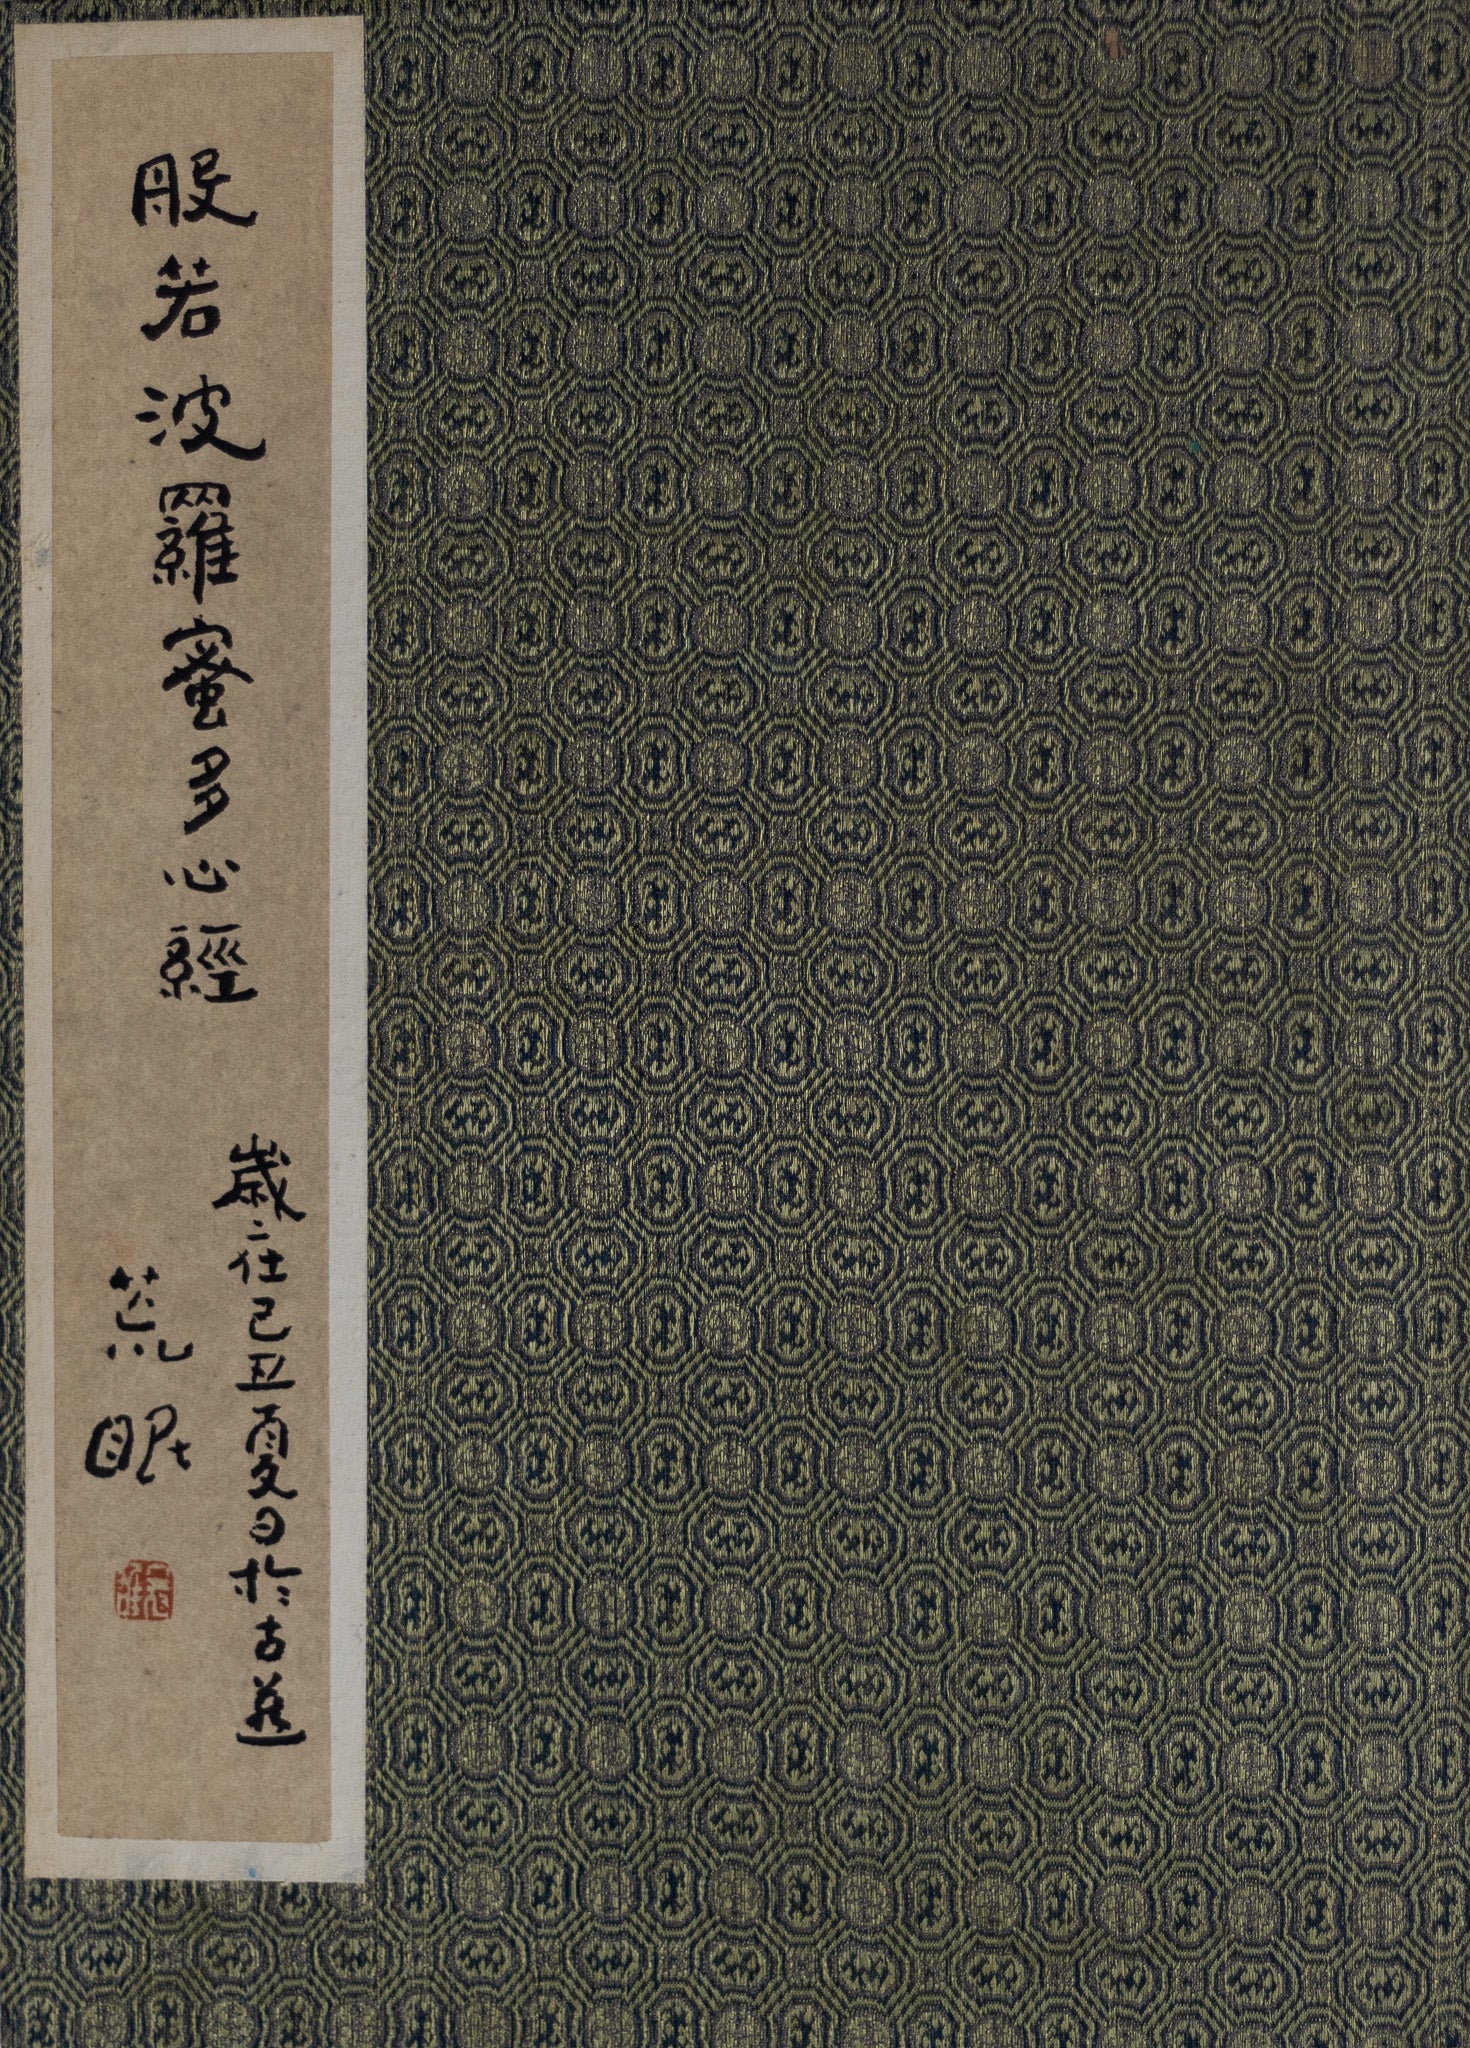 般若波羅蜜多心經
歲在己丑夏日於古燕
荒眠